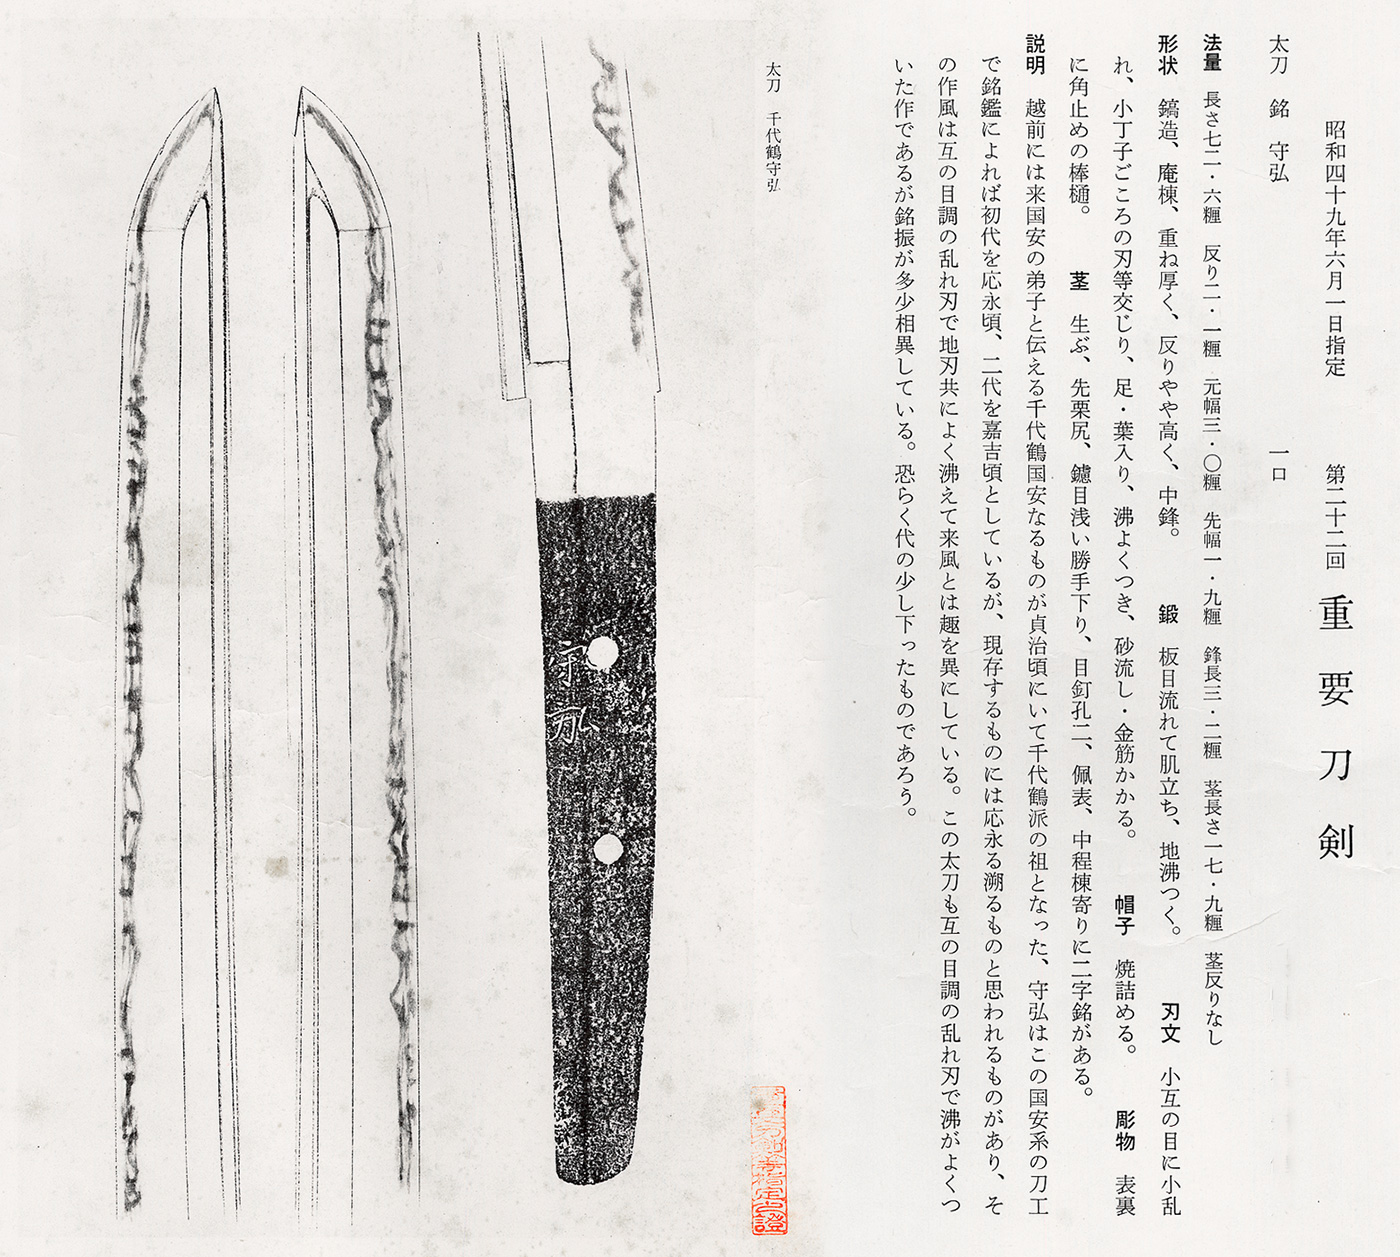 昭和四十九年六月一日指定　第二十二回　重要刀剣
太刀　銘　守弘　一口
法量　長さ七二・六糎　反り二・一糎　元幅三・〇糎　先幅一・九糎　鋒長三・二糎　茎長さ一七・九糎　茎反りなし
形状　鎬造、庵棟、重ね厚く、反りやや高く、中鋒。　鍛　板目流れて肌立ち、地沸つく。　刃文　小互の目に小乱
れ、小丁子ごころの刃等交じり、足・葉入り、沸よくつき、砂流し・金筋かかる。　帽子　焼詰める。　彫物　表裏
に角止めの棒樋。　茎　生ぶ、先栗尻、鑢目浅い勝手下り、目釘孔二、佩表、中程棟寄りに二字銘がある。
説明　越前には来国安の弟子と伝える千代鶴国安なるものが貞治頃にいて千代鶴派の祖となった、守弘はこの国安系の刀工
で銘鑑によれば初代を応永頃、二代を嘉吉頃としているが、現存するものには応永る溯るものと思われるものがあり、そ
の作風は互の目調の乱れ刃で地刃共によく沸えて来風とは趣を異にしている。この太刀も互の目調の乱れ刃で沸がよくつ
いた作であるが銘振が多少相異している。恐らく代の少し下ったものであろう。
太刀　千代鶴守弘
守弘
指定之證